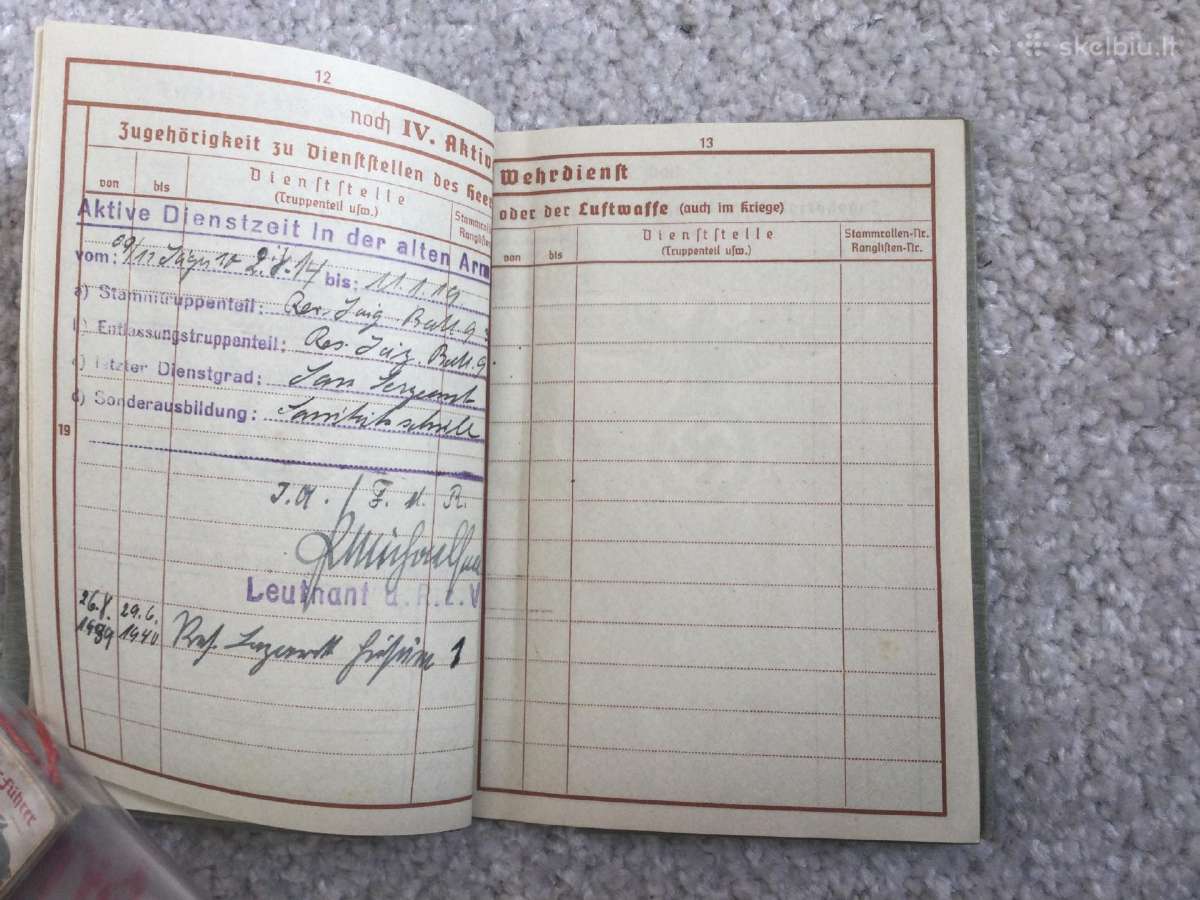 skelbiu.lt
12
noch IV. Aktiv
Zugehörigkeit zu Dienststellen des Heer
von bis Dienststelle
(Truppenteil usw.)
Stammrollen
Ranglisten
Aktive Dienstzeit in der alten Arm
vom: 09/11 2.8.14 bis: 11.1.19.
a) Stammtruppenteil: Res. Jäg. Batl. 9
b) Entlassungstruppenteil: Res. Jäg. Batl. 9.
c) letzter Dienstgrad: San Sergeant
d) Sonderausbildung: Sanitätsschule
19
I.A. / F. d. R.
Leutnant d. R. z. V
26.8. 29.6.
1939 1940 Res. Lazarett Husum 1
13
Wehrdienst
oder der Luftwaffe (auch im Kriege)
von bis Dienststelle
(Truppenteil usw.)
Stammrollen-Nr.
Ranglisten-Nr.
Führer